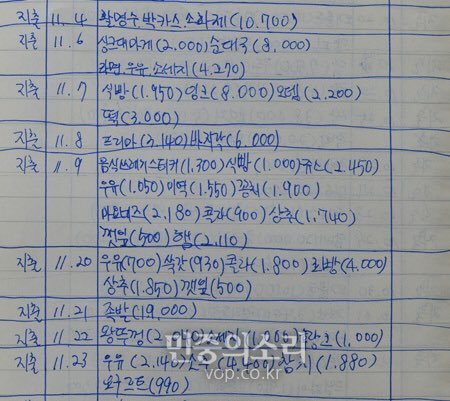 지출 11. 4 활명수 박카스 소화제(10.700)
지출 11. 6 싱크대마개(2.000)순대국(8,000)
라면.우유.소세지(4.270)
지출 11. 7 식빵(1.950)잉크(8.000)오뎅(2.200)
떡(3.000)
지출 11. 8 프리마(3.140)바지락(6,000)
지출 11. 9 음식쓰레기스티커(1.300)식빵(1.000)쥬스(2.450)
우유(1.050)미역(1.550)꽁치(1.900)
마요네즈(2.180)콜라(900)상추(1.740)
깻잎(500)햄(2.110)
지출 11. 20 우유(700)쑥갓(930)콜라(1.800) (4.000)
상추(1.850)깻잎(500)
지출 11. 21 족발(19.000)
지출 11. 22 왕뚜껑 (1.000)
지출 11. 23 우유(2.140) (4.400)참치(1.880)
요구르트(990)
민중의소리
vop.co.kr